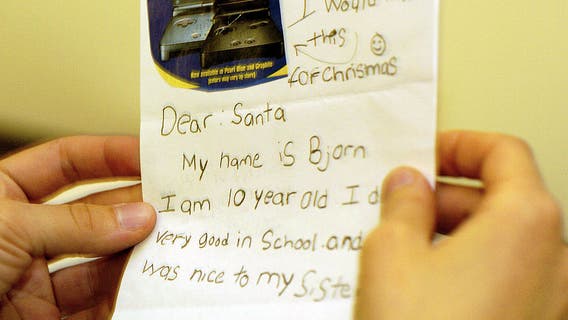 Now available in Pearl Blue and Graphite
(Colors may vary by store)
I would
this
for Christmas
Dear: Santa
My name is Bjorn
I am 10 year old I d
very good in School. and
was nice to my Siste